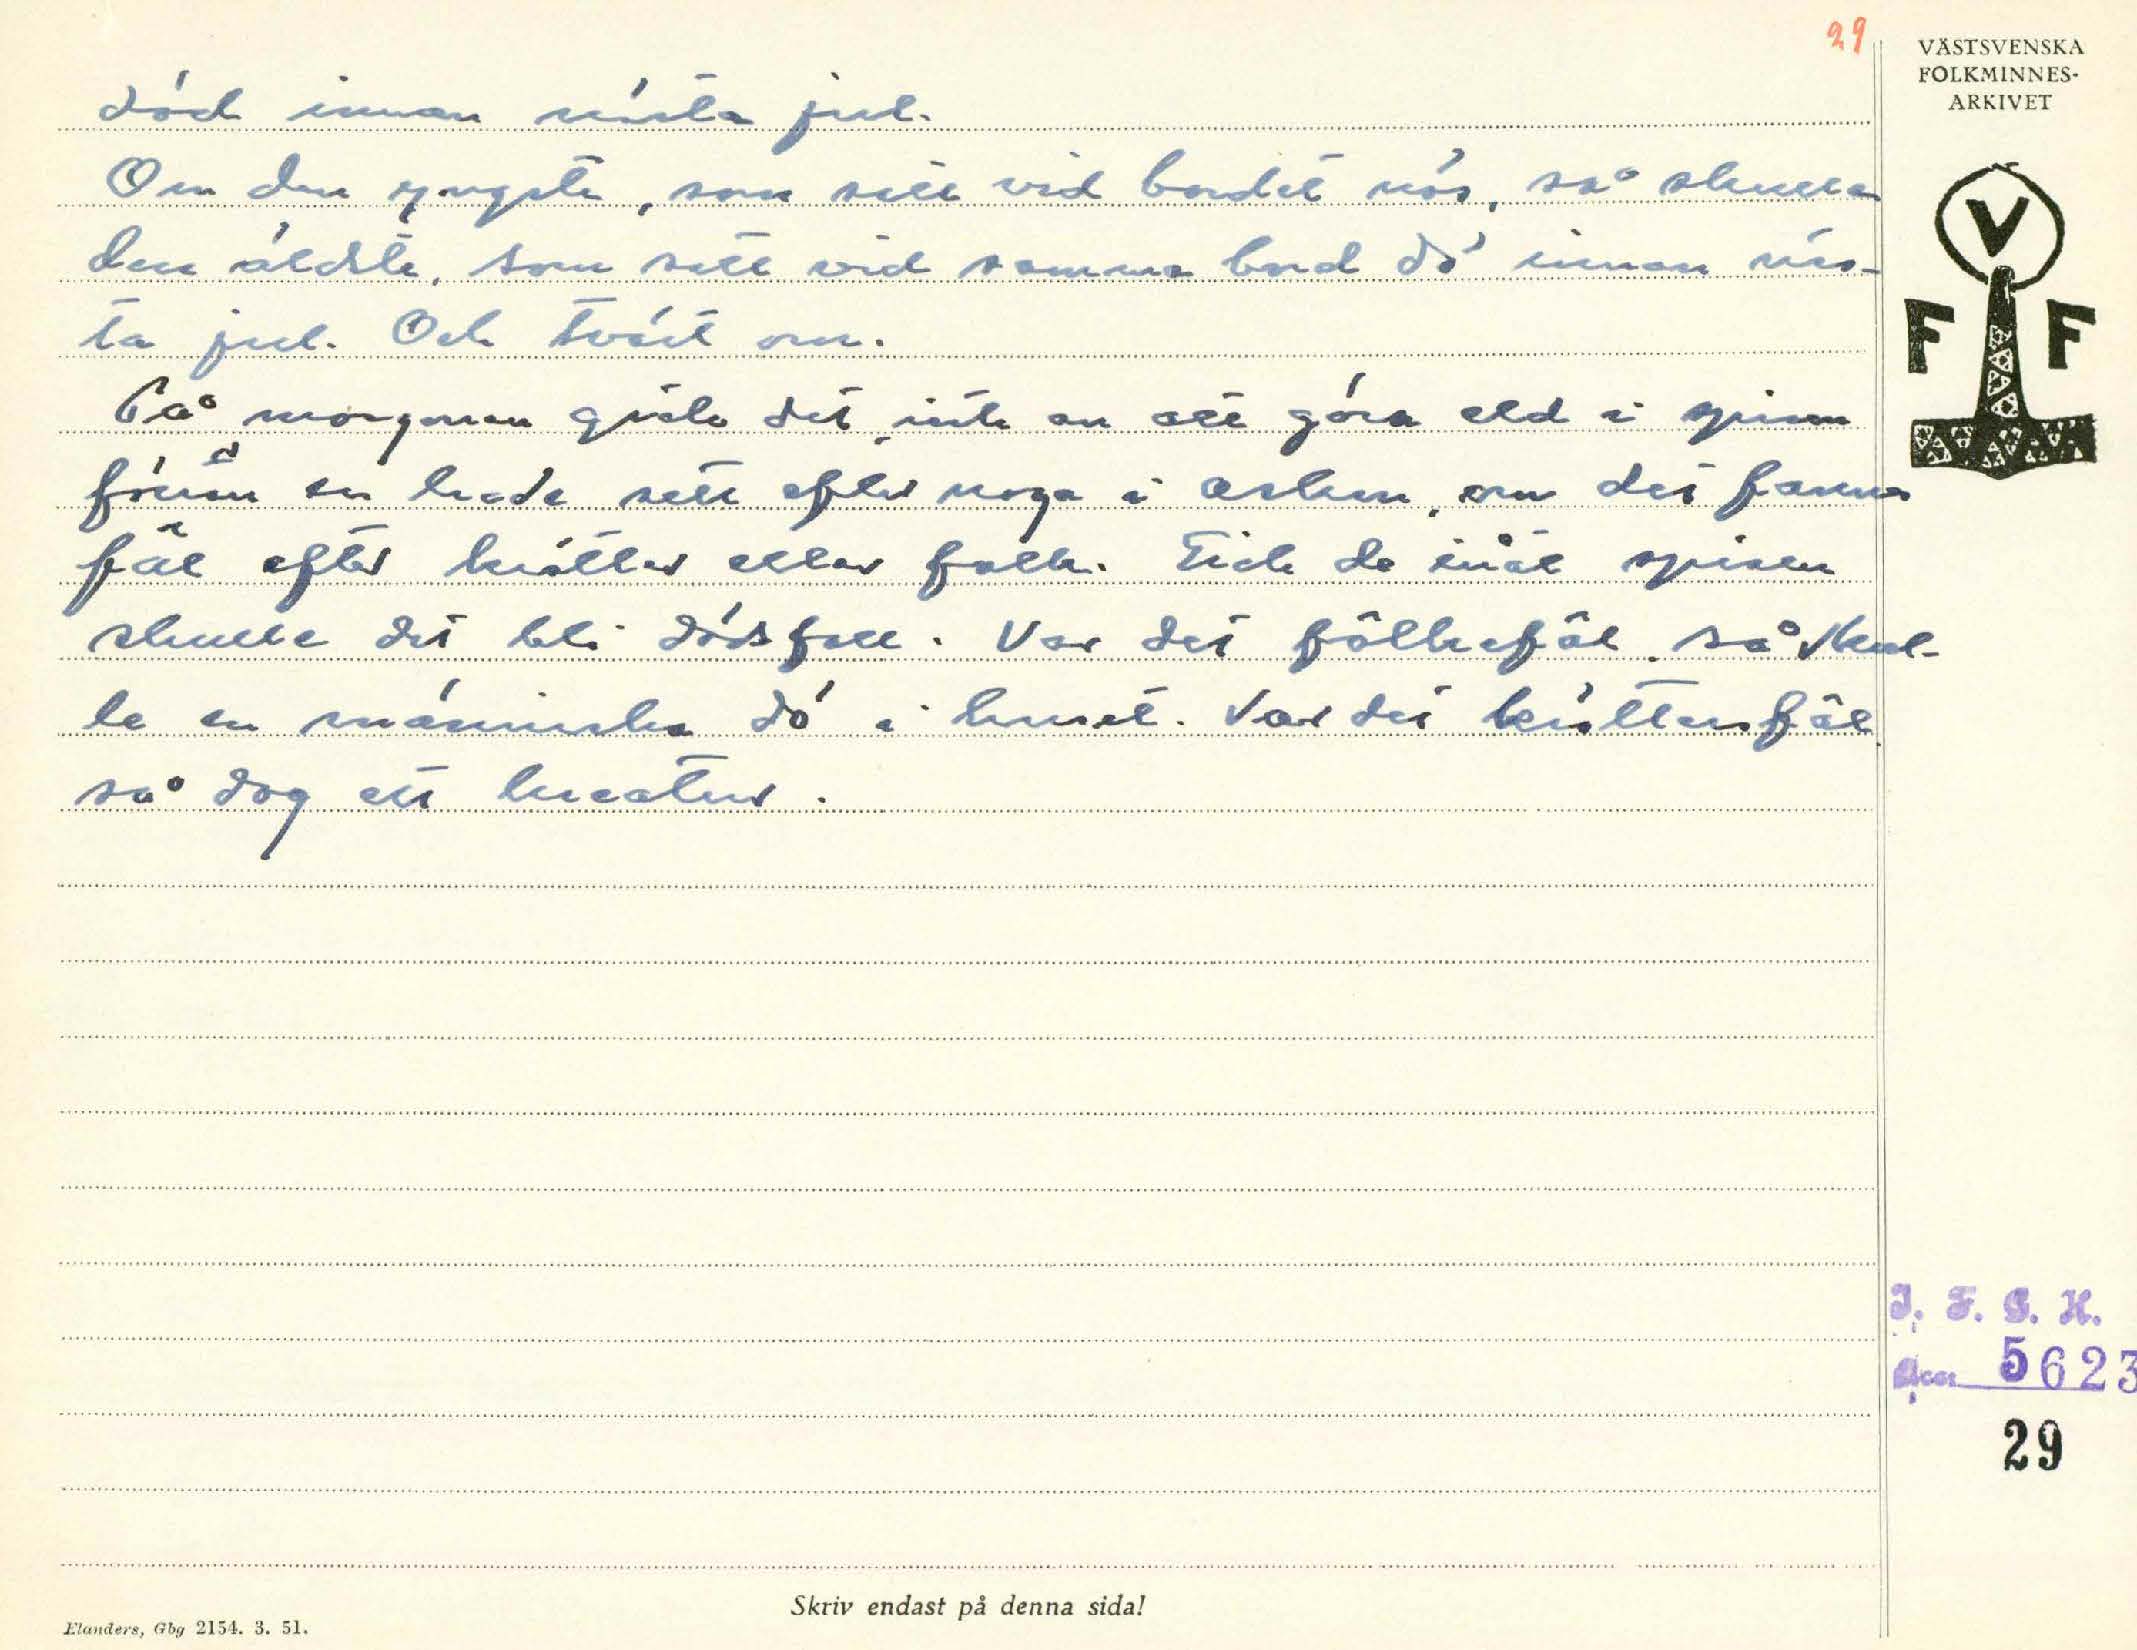 29
VÄSTSVENSKA
FOLKMINNES-
ARKIVET
V
F F
död innan nästa jul.
Om den yngste, som satt vid bordet nös, så skulle
den äldste, som satt vid samma bord dö innan näs-
ta jul. Och tvärt om.
På morgonen gick det inte an att göra eld i spisen
förrän en hade sett efter noga i askan, om det fanns
fät efter kritter eller folk. Gick de inåt spisen
skulle det bli dödsfall. Var det fölkefät, så skul-
le en människa dö i huset. Var det krittersfät
så dog ett kreatur.
I. F. G. H.
Acc. 5623
29
Skriv endast på denna sida!
Elanders, Gbg 2154. 3. 51.